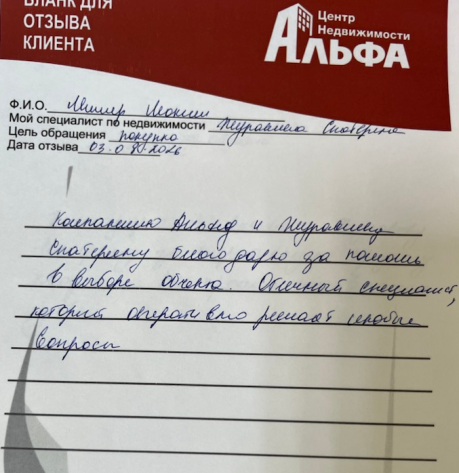 БЛАНК ДЛЯ
ОТЗЫВА
КЛИЕНТА
Центр
Недвижимости
АЛЬФА
Ф.И.О. Миллер Максим
Мой специалист по недвижимости Журавлева Екатерина
Цель обращения покупка
Дата отзыва
Компанию Альфа и Журавлеву
Екатерину благодарю за помощь
в выборе объекта. Отличный специалист,
который оперативно решает любые
вопросы